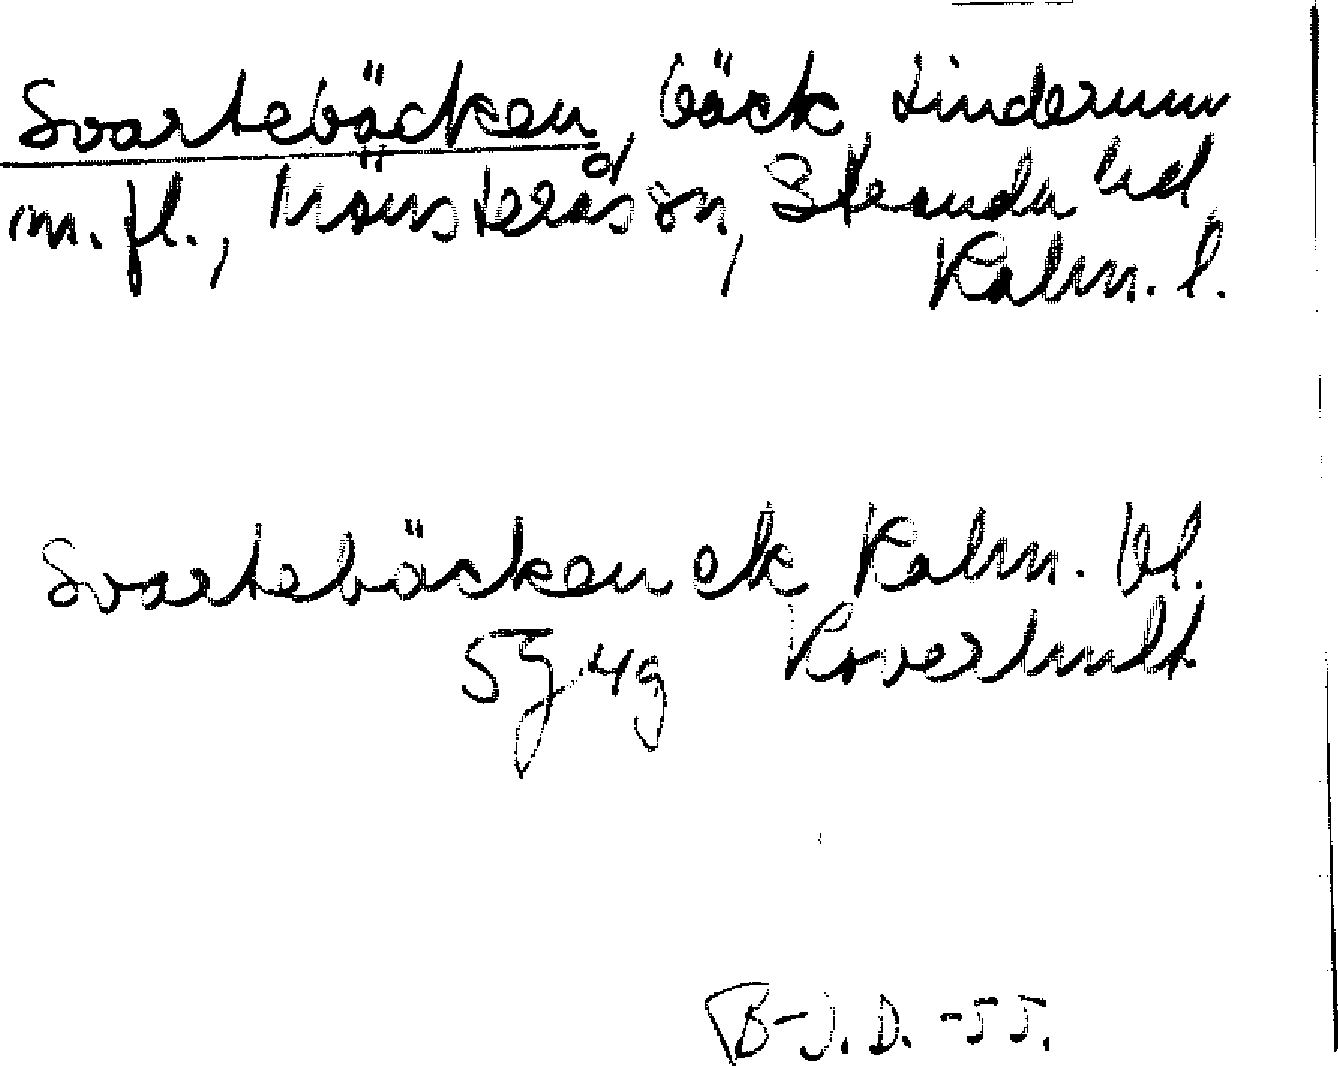 Svartebäcken, bäck, Linderum
m. fl., Mönsterås sn, Stranda hd,
Kalm. l.
Svartebäcken ek Kalm. bl.
5G4g Roverhult
B-J. D. -55.